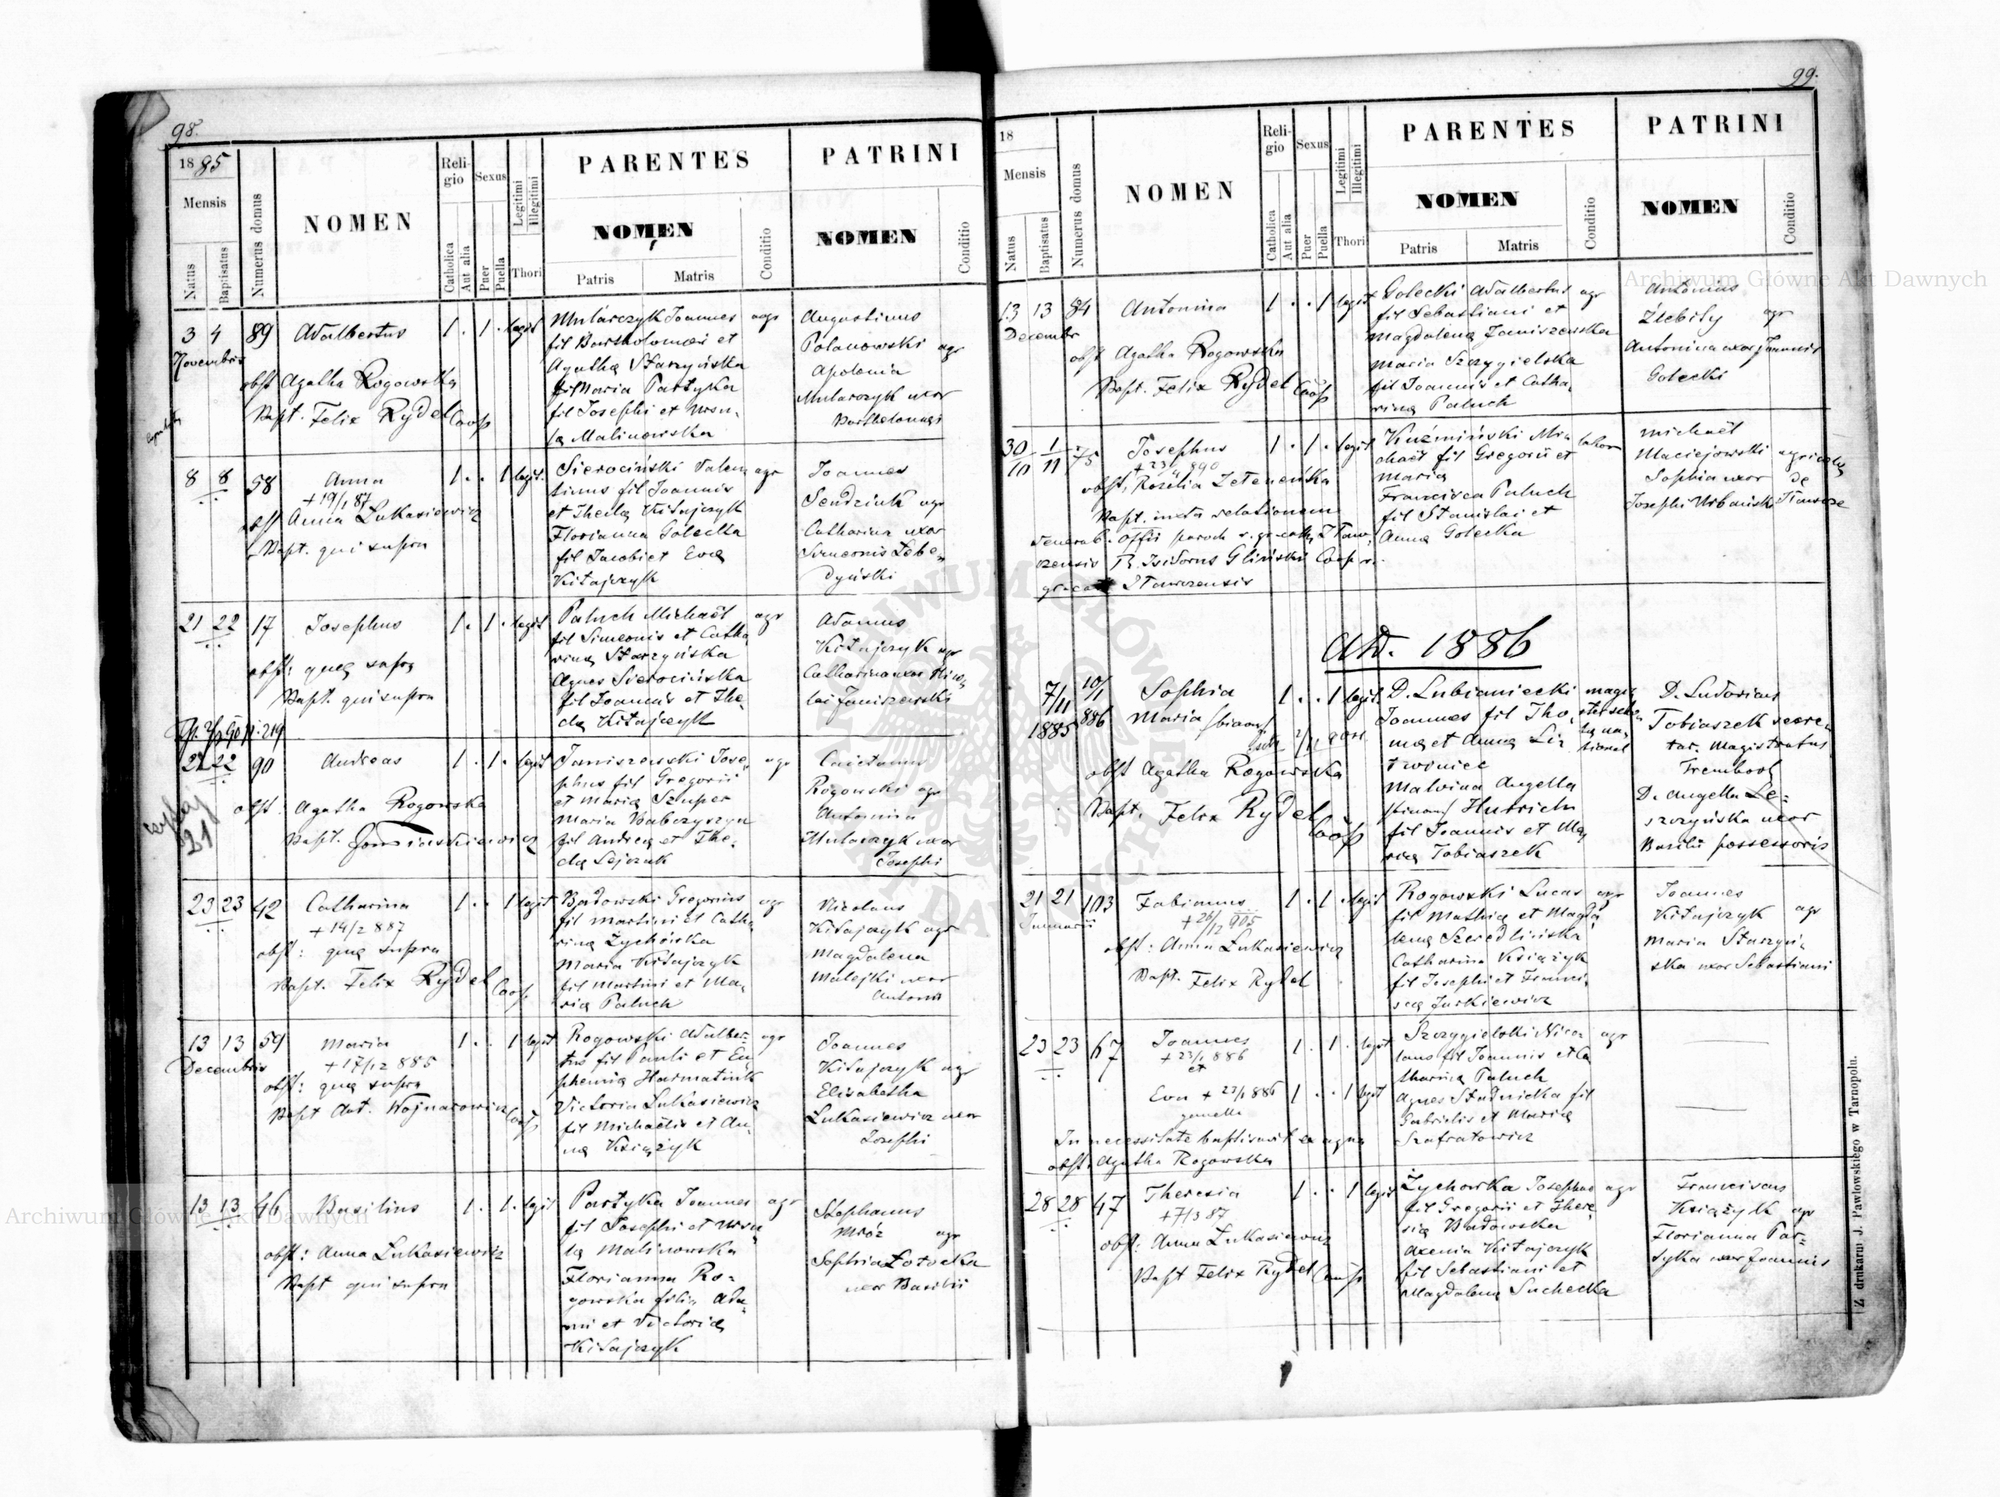 98.
1885
Mensis
Natus
Baptisatus
Numerus domus
NOMEN
Religio
Catholica
Aut alia
Sexus
Puer
Puella
Legitimi
Illegitimi
Thori
PARENTES
NOMEN
Patris
Matris
Conditio
PATRINI
NOMEN
Conditio
3 4 89 Adalbertus 1 . 1 . legit
Novembris
obst Agatha Rogowska
Bapt. Felix Rydel Coop
Mularczyk Joannes agr
fil Bartholomæi et
Agatha Starzyńska
fil Maria Partyka
fil Josephi et Ursu-
la Malinowska
Augustinus
Polanowski agr
Apolonia
Mularczyk uxor
Bartholomæi
8 8 58 Anna 1 . . 1 legit.
+ 19/1 87
obst Anna Łukasiewicz
Bapt. qui supra
Sierociński Valen agr
tinus fil Joannis
et Thecla Kitajczyk
Florianna Gołecka
fil Jacobi et Eva
Kitajczyk
Joannes
Sendziuk agr
Catharina uxor
Simeonis Łebe-
dyński
21 22 17 Josephus 1 . 1 . legit
obst: quæ supra
Bapt qui supra
Paluch Michaël agr
fil Simeonis et Catha
rina Starzyńska
Agnes Sierocińska
fil Joannis et The-
cla Kitajczyk
Adamus
Kitajczyk agr
Catharina uxor Nico-
lai Janiszewski
22 22 90 Andreas 1 . 1 . legit
obst: Agatha Rogowska
21
Janiszewski Jose- agr
phus fil Gregorii
et Maria Szuper
Maria Babczyszyn
fil Andrea et The-
cla Lejczak
Caietanus
Rogowski agr
Antonina
Mularczyk uxor
Josephi
23 23 42 Catharina 1 . . 1 legit
+ 14/2 887
obst: quæ supra
Bapt. Felix Rydel Coop
Badowski Gregorius agr
fil Martini et Catha-
rina Żychowska
Maria Kitajczyk
fil Martini et Ma-
ria Paluch
Nicolaus
Kitajczyk agr
Magdalena
Malejki uxor
Antonii
13 13 59 Maria 1 . . 1 legit
Decembris + 17/12 885
obst: quæ supra
Bapt Ant. Wojnarowicz Coop
Rogowski Adalber- agr
tus fil Pauli et Eu
phemia Harmatiuk
Victoria Łukasiewicz
fil Michaelis et An-
na Książyk
Joannes
Kitajczyk agr
Elisabetha
Łukasiewicz uxor
Josephi
13 13 46 Basilius 1 . 1 . legit
obst: Anna Łukasiewicz
Bapt qui supra
Partyka Joannes agr
fil Josephi et Ursu
la Malinowska
Florianna Ro-
gowska filia Ada-
mi et Victoria
Kitajczyk
Stephanus
Mróz agr
Sophia Łotocka
uxor Basilii
99.
18
Mensis
Natus
Baptisatus
Numerus domus
NOMEN
Religio
Catholica
Aut alia
Sexus
Puer
Puella
Legitimi
Illegitimi
Thori
PARENTES
NOMEN
Patris
Matris
Conditio
PATRINI
NOMEN
Conditio
13 13 84 Antonina 1 . . 1 legit
Decembr
obst Agatha Rogowska
Bapt. Felix Rydel Coop
Gołecki Adalbertus agr
fil Sebastiani et
Magdalena Janiszewska
Maria Szczygielska
fil Joannis et Catha-
rina Paluch
Antonius
Antonina uxor Joannis
Gołecki
30/10 1/11 75 Josephus 1 . 1 . legit
Bapt. iuxta relationem
Kuźmiński Mi-
chaël fil Gregorii et
Maria
Francisca Paluch
fil Stanislai et
Anna Gołecka
Michaël
Maciejowski agricola
Sophia uxor de
Ad. 1886
7/11 1885 10/1 886 Sophia 1 . . 1 legit
Maria
obst Agatha Rogowska
Bapt. Felix Rydel Coop
D. Lubianiecki
Joannes fil Tho-
ma et Anna
Malvina Angella
fil Joannis et Ma
ria Tobiaszek
Tobiaszek secre-
tar. Magistratus
D. Angella Le-
szczyńska uxor
Basilii possessoris
21 21 103 Fabianus 1 . 1 . legit
Januarii + 26/12 905
obst: Anna Łukasiewicz
Bapt. Felix Rydel
Rogowski Lucas agr
fil Mathia et Magda
lena Szeredlińska
Catharina Książyk
fil Josephi et Franci-
sca Jurkiewicz
Joannes
Kitajczyk agr
Maria Starzyń-
ska uxor Sebastiani
23 23 67 Joannes 1 . 1 . legit
+ 23/1 886
et
Eva + 23/1 886 1 . . 1 legit
gemella
In necessitate baptisavit ex aqua
obst. Agatha Rogowska
Szczygielski Nico- agr
laus fil Joannis et Ca
tharina Paluch
Agnes Studnicka fil
Gabrielis et Maria
Szafratowicz
28 28 47 Theresia 1 . . 1 legit
+ 7/3 87
obst: Anna Łukasiewicz
Bapt Felix Rydel Coop
Żychowka Josephus agr
fil Gregorii et There-
sia Badowska
Axenia Kitajczyk
fil Sebastiani et
Magdalena Suchecka
Franciscus
Książyk agr
Florianna Par-
tyka uxor Joannis
Z drukarni J. Pawłowskiego w Tarnopolu.
Archiwum Główne Akt Dawnych
Archiwum Główne Akt Dawnych
ARCHIWUM GŁÓWNE AKT DAWNYCH